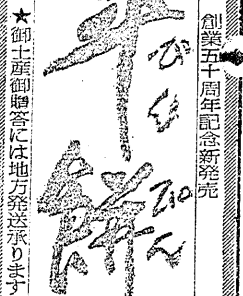 創業五十周年記念新発売
平餅
★御土産御贈答には地方発送承ります